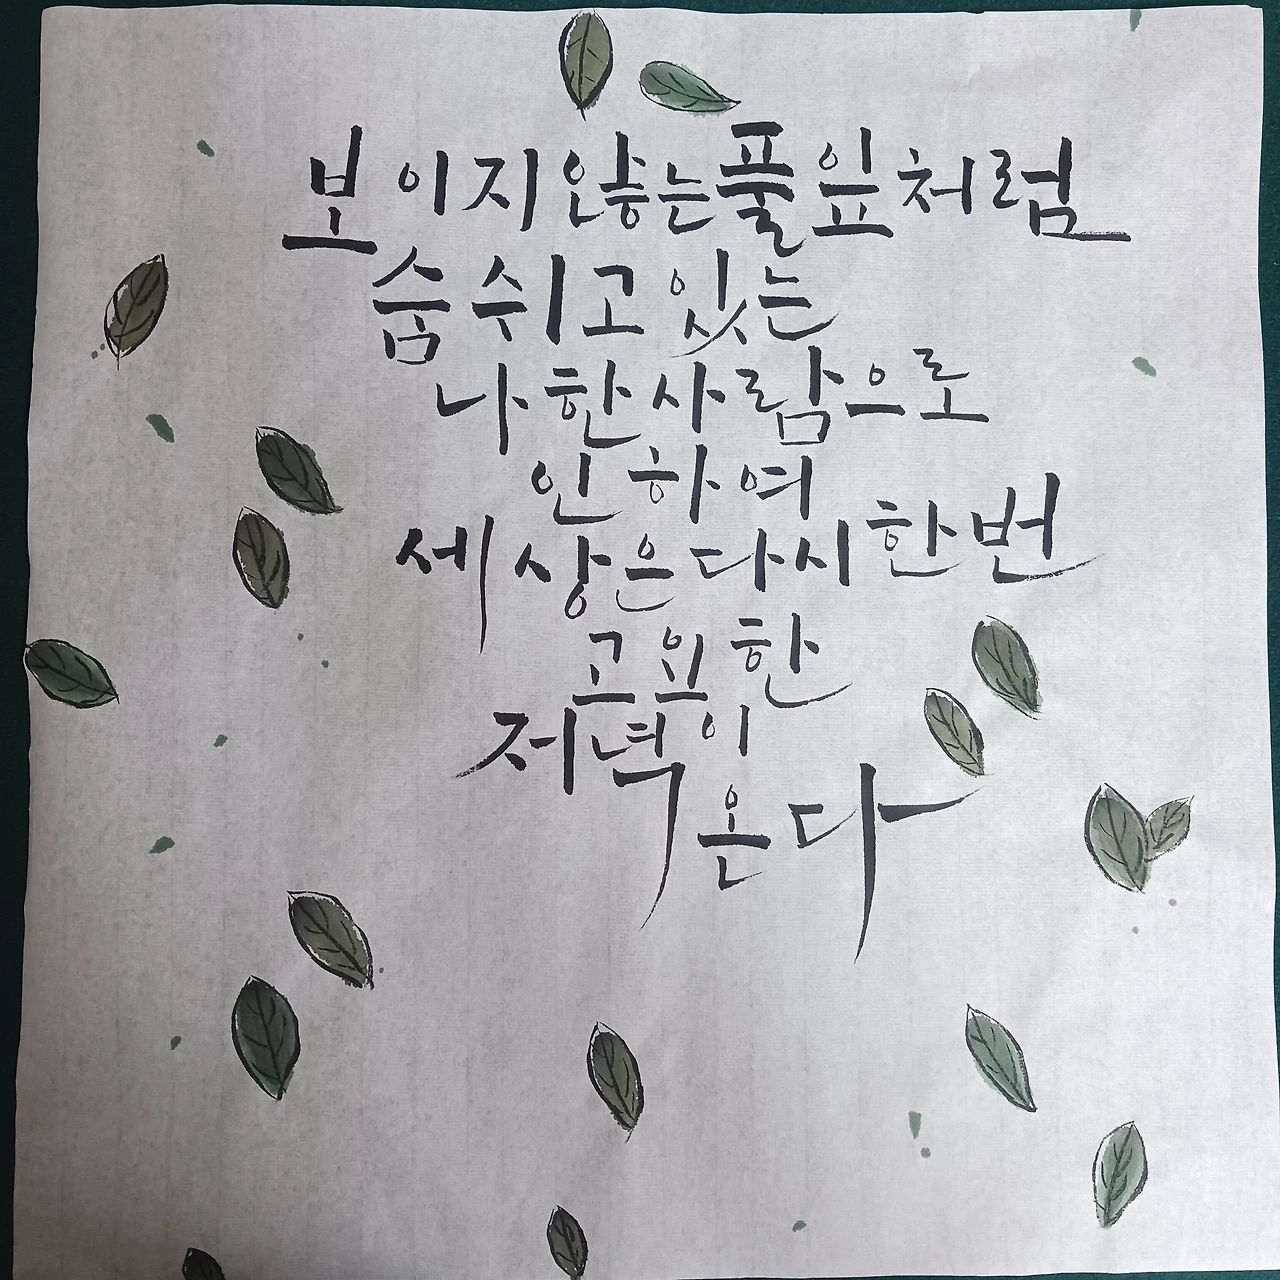 보이지 않는 풀잎처럼
숨 쉬고 있는
나 한 사람으로
인하여
세상은 다시 한 번
고요한
저녁이
온다